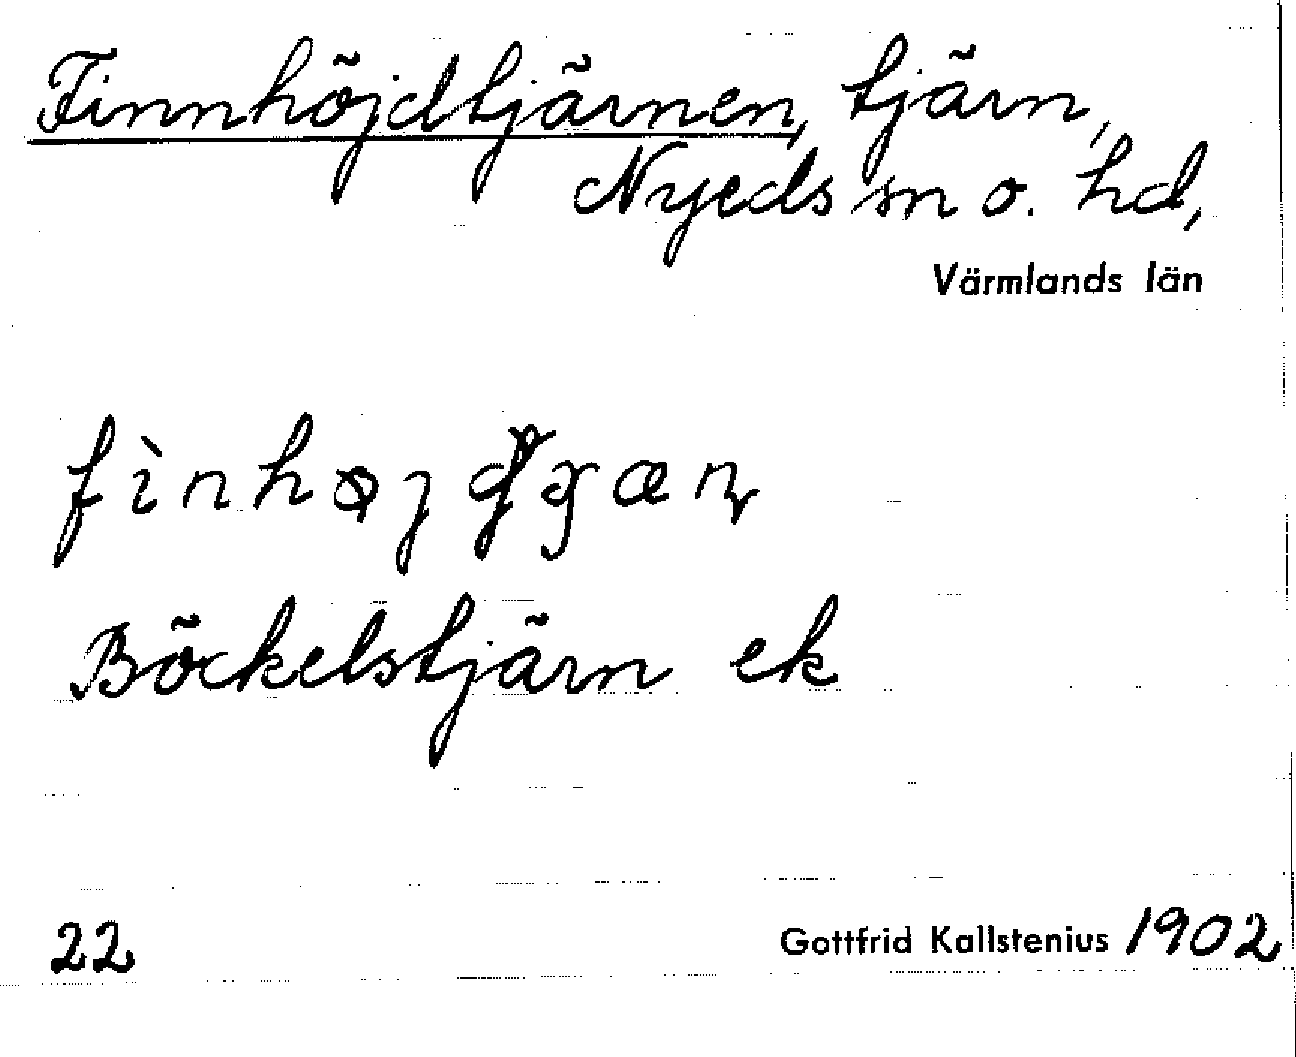 Finnhöjdtjärnen, tjärn,
Nyeds sn o. hd,
Värmlands län
Böckelstjärn ek
22
Gottfrid Kallstenius 1902